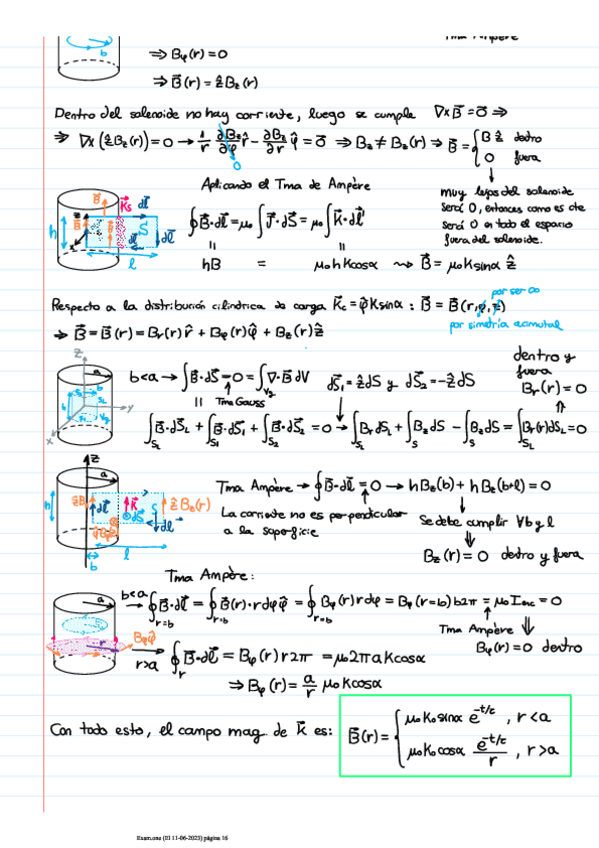 Tma Ampère
b
⇒ Bφ(r) = 0
⇒ B⃗(r) = ẑ B_z(r)
Dentro del solenoide no hay corriente, luego se cumple ∇×B⃗ = 0⃗ ⇒
⇒ ∇×(ẑB_z(r)) = 0 → 1/r ∂B_z/∂φ r̂ - ∂B_z/∂r φ̂ = 0⃗ ⇒ B_z ≠ B_z(r) ⇒ B⃗ = { B ẑ dentro
0 fuera
0
Aplicando el Tma de Ampère
muy lejos del solenoide
será 0, entonces como es cte
será 0 en todo el espacio
fuera del solenoide.
∮B⃗·dl⃗ = μ₀ ∫J⃗·dS⃗ = μ₀ ∫K⃗·dl⃗'
hB = μ₀ h K cosα ⇝ B⃗ = μ₀ K sinα ẑ
h
l
Respecto a la distribución cilíndrica de carga K⃗c = φ̂ K sinα : B⃗ = B⃗(r, φ, z)
por ser ∞
por simetría acimutal
⇒ B⃗ = B⃗(r) = Br(r) r̂ + Bφ(r) φ̂ + Bz(r) ẑ
b<a → ∫B⃗·dS⃗ = 0 = ∫∇·B⃗ dV
Tma Gauss
dS⃗₁ = ẑdS y dS⃗₂ = -ẑdS
dentro y
fuera
Br(r) = 0
∫B⃗·dS⃗L + ∫B⃗·dS⃗₁ + ∫B⃗·dS⃗₂ = 0 → ∫Br dSL + ∫Bz dS - ∫Bz dS = ∫Br(r) dSL = 0
Tma Ampère → ∮B⃗·dl⃗ = 0 → hBz(b) + hBz(b+l) = 0
La corriente no es perpendicular
a la superficie
Se debe cumplir ∀b y l
Bz(r) = 0 dentro y fuera
Tma Ampère:
b<a → ∮B⃗·dl⃗ = ∮B⃗(r)·r dφ φ̂ = ∮Bφ(r) r dφ = Bφ(r=b) b2π = μ₀ Ienc = 0
Tma Ampère
Bφ(r) = 0 dentro
r>a ∮B⃗·dl⃗ = Bφ(r) r 2π = μ₀ 2π a K cosα
⇒ Bφ(r) = a/r μ₀ K cosα
Con todo esto, el campo mag. de K⃗ es: B⃗(r) = { μ₀ K₀ sinα e^(-t/τ) , r<a
μ₀ K₀ cosα e^(-t/τ)/r , r>a
Exam.one (III 11-06-2023) página 16